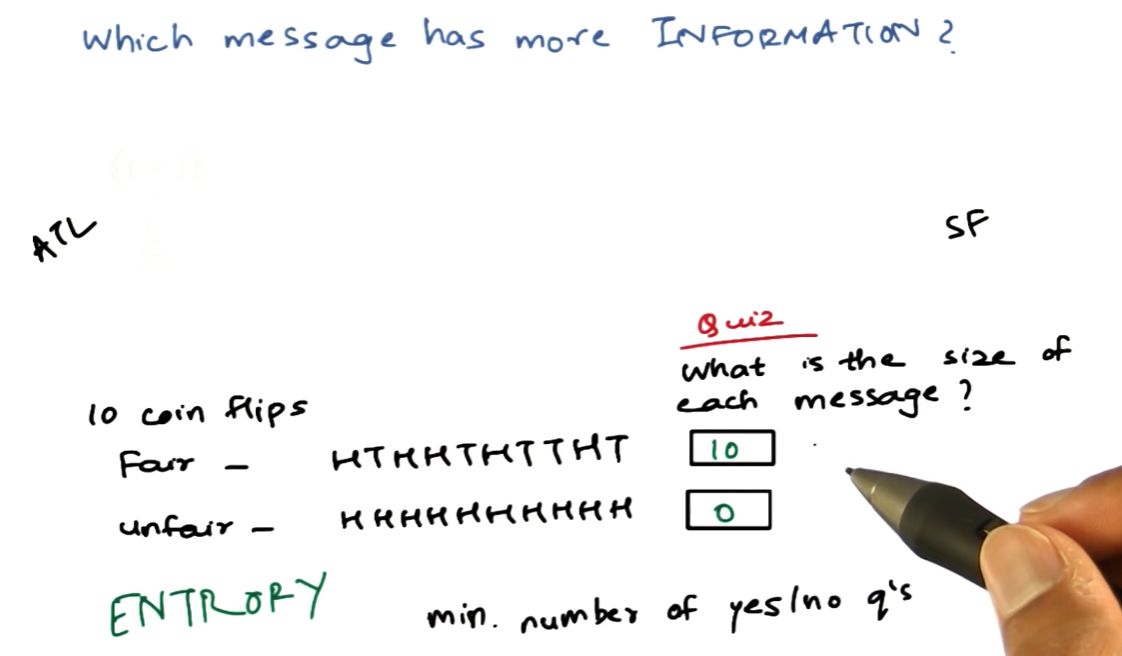 Which message has more INFORMATION?
ATL
SF
Quiz
What is the size of
each message?
10 coin flips
Fair - HTHHTHTTHT 10
unfair - HHHHHHHHHH 0
ENTRORY
min. number of yes/no q's